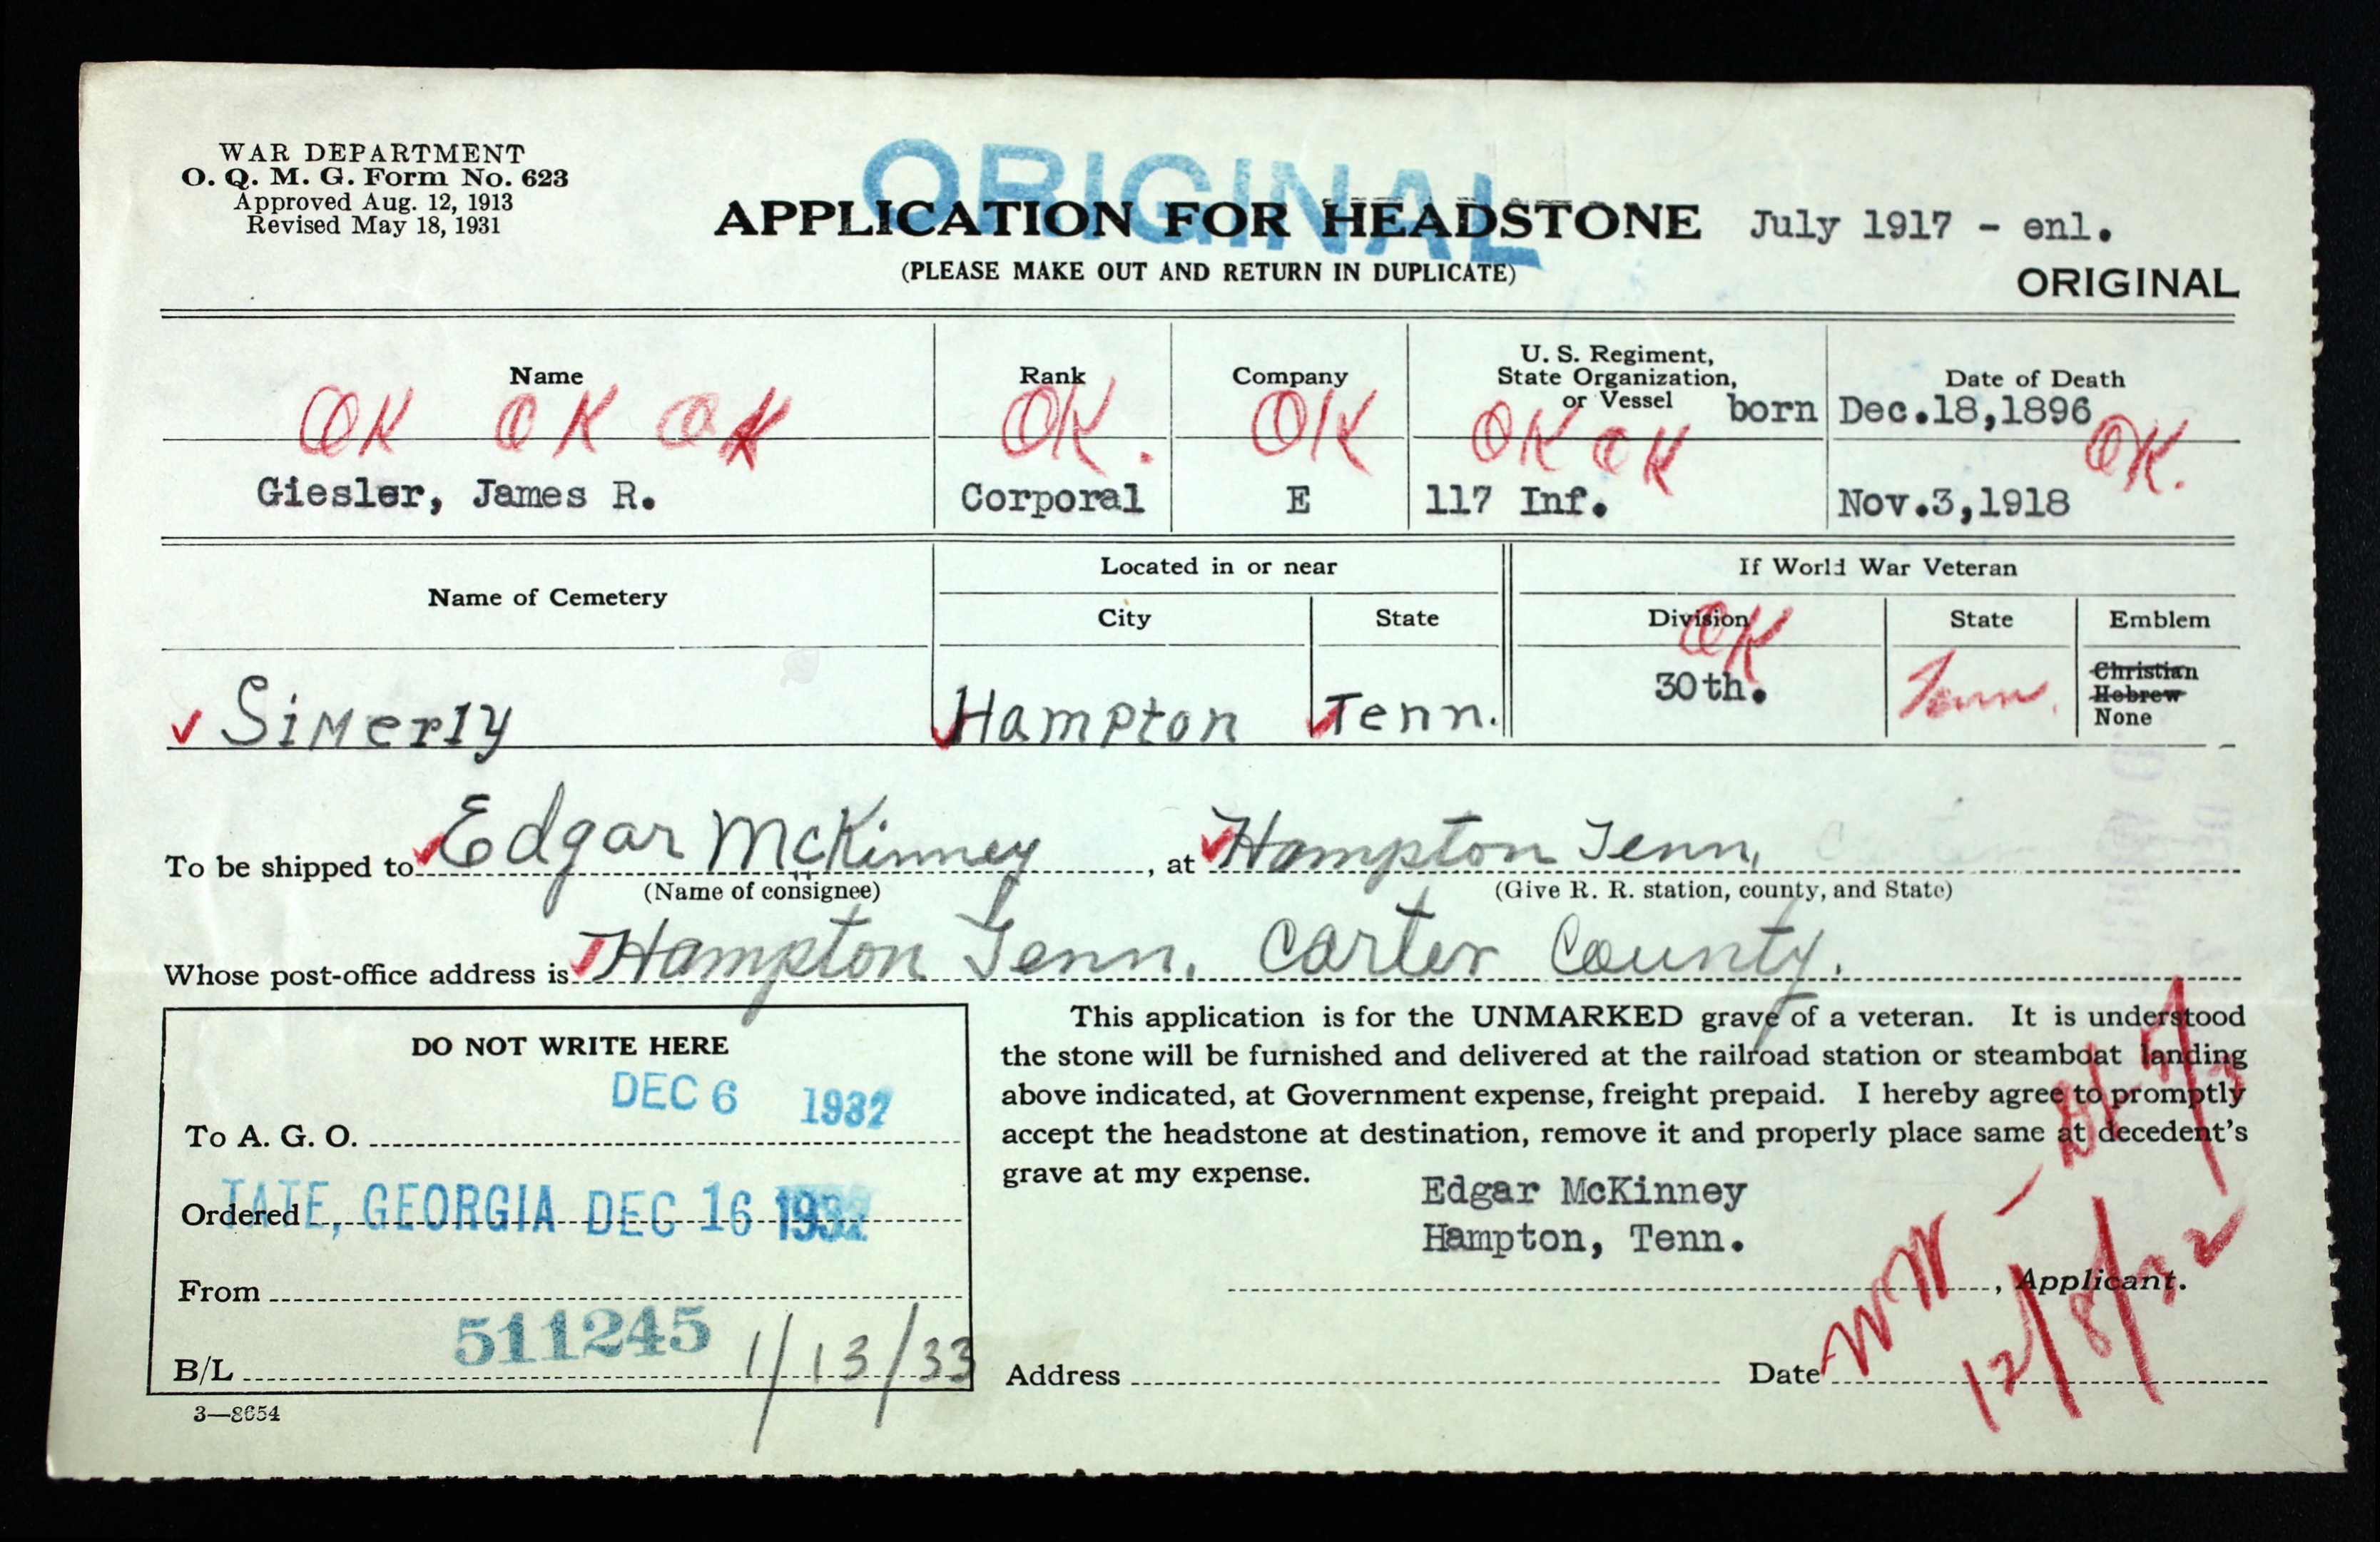 WAR DEPARTMENT
O. Q. M. G. Form No. 623
Approved Aug. 12, 1913
Revised May 18, 1931
ORIGINAL
APPLICATION FOR HEADSTONE July 1917 - enl.
(PLEASE MAKE OUT AND RETURN IN DUPLICATE)
ORIGINAL
Name Rank Company U. S. Regiment, State Organization, or Vessel Date of Death
born Dec.18,1896
OK OK OK OK. OK OK OK OK.
Giesler, James R. Corporal E 117 Inf. Nov.3,1918
Name of Cemetery Located in or near If World War Veteran
City State Division State Emblem
OK
Christian
Hebrew
None
Simerly Hampton Tenn. 30th. Tenn.
To be shipped to Edgar McKinney, at Hampton Tenn,
(Name of consignee) (Give R. R. station, county, and State)
Whose post-office address is Hampton Tenn. Carter County.
DO NOT WRITE HERE
DEC 6 1932
To A. G. O.
Ordered TATE, GEORGIA DEC 16 1932
From
511245
B/L 1/13/33
3—8654
This application is for the UNMARKED grave of a veteran. It is understood
the stone will be furnished and delivered at the railroad station or steamboat landing
above indicated, at Government expense, freight prepaid. I hereby agree to promptly
accept the headstone at destination, remove it and properly place same at decedent's
grave at my expense.
Edgar McKinney
Hampton, Tenn.
, Applicant.
Address Date
12/8/32